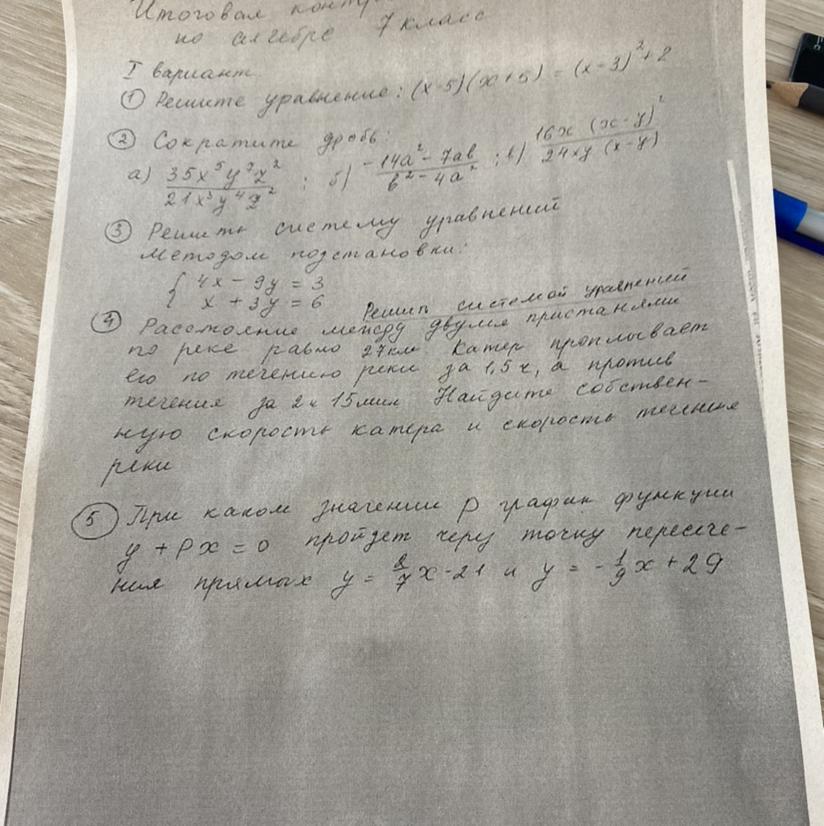 Итоговая контр
по алгебре 7 класс
I вариант
① Решите уравнение: (x-5)(x+5) = (x-3)²+2
② Сократите дробь:
а) 35x⁵y⁷z² / 21x³y⁴z² ; б) -14a²-7ab / b²-4a² ; в) 16x(x-y)² / 24xy(x-y)
③ Решить систему уравнений
методом подстановки:
{ 4x - 9y = 3
{ x + 3y = 6
Решить системой уравнений
④ Расстояние между двумя пристанями
по реке равно 27км Катер проплывает
его по течению реки за 1,5 ч, а против
течения за 2ч 15мин Найдите собствен-
ную скорость катера и скорость течения
реки
⑤ При каком значении p график функции
y + px = 0 пройдет через точку пересече-
ния прямых y = /7 x - 21 и y = -1/9 x + 29